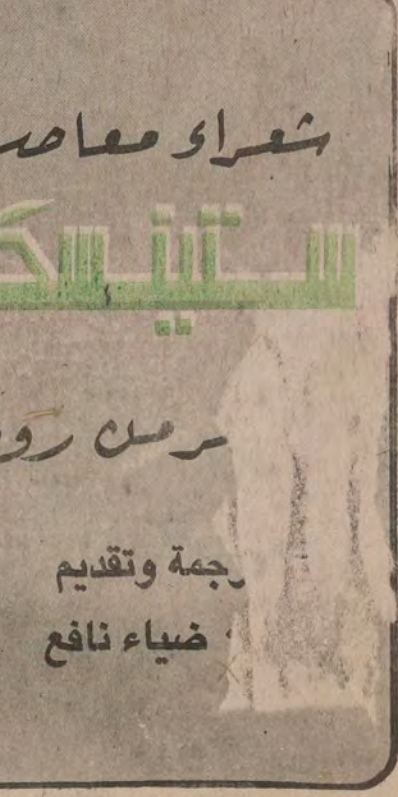 شعراء معاصر
ستينسك
رجمة وتقديم
ضياء نافع